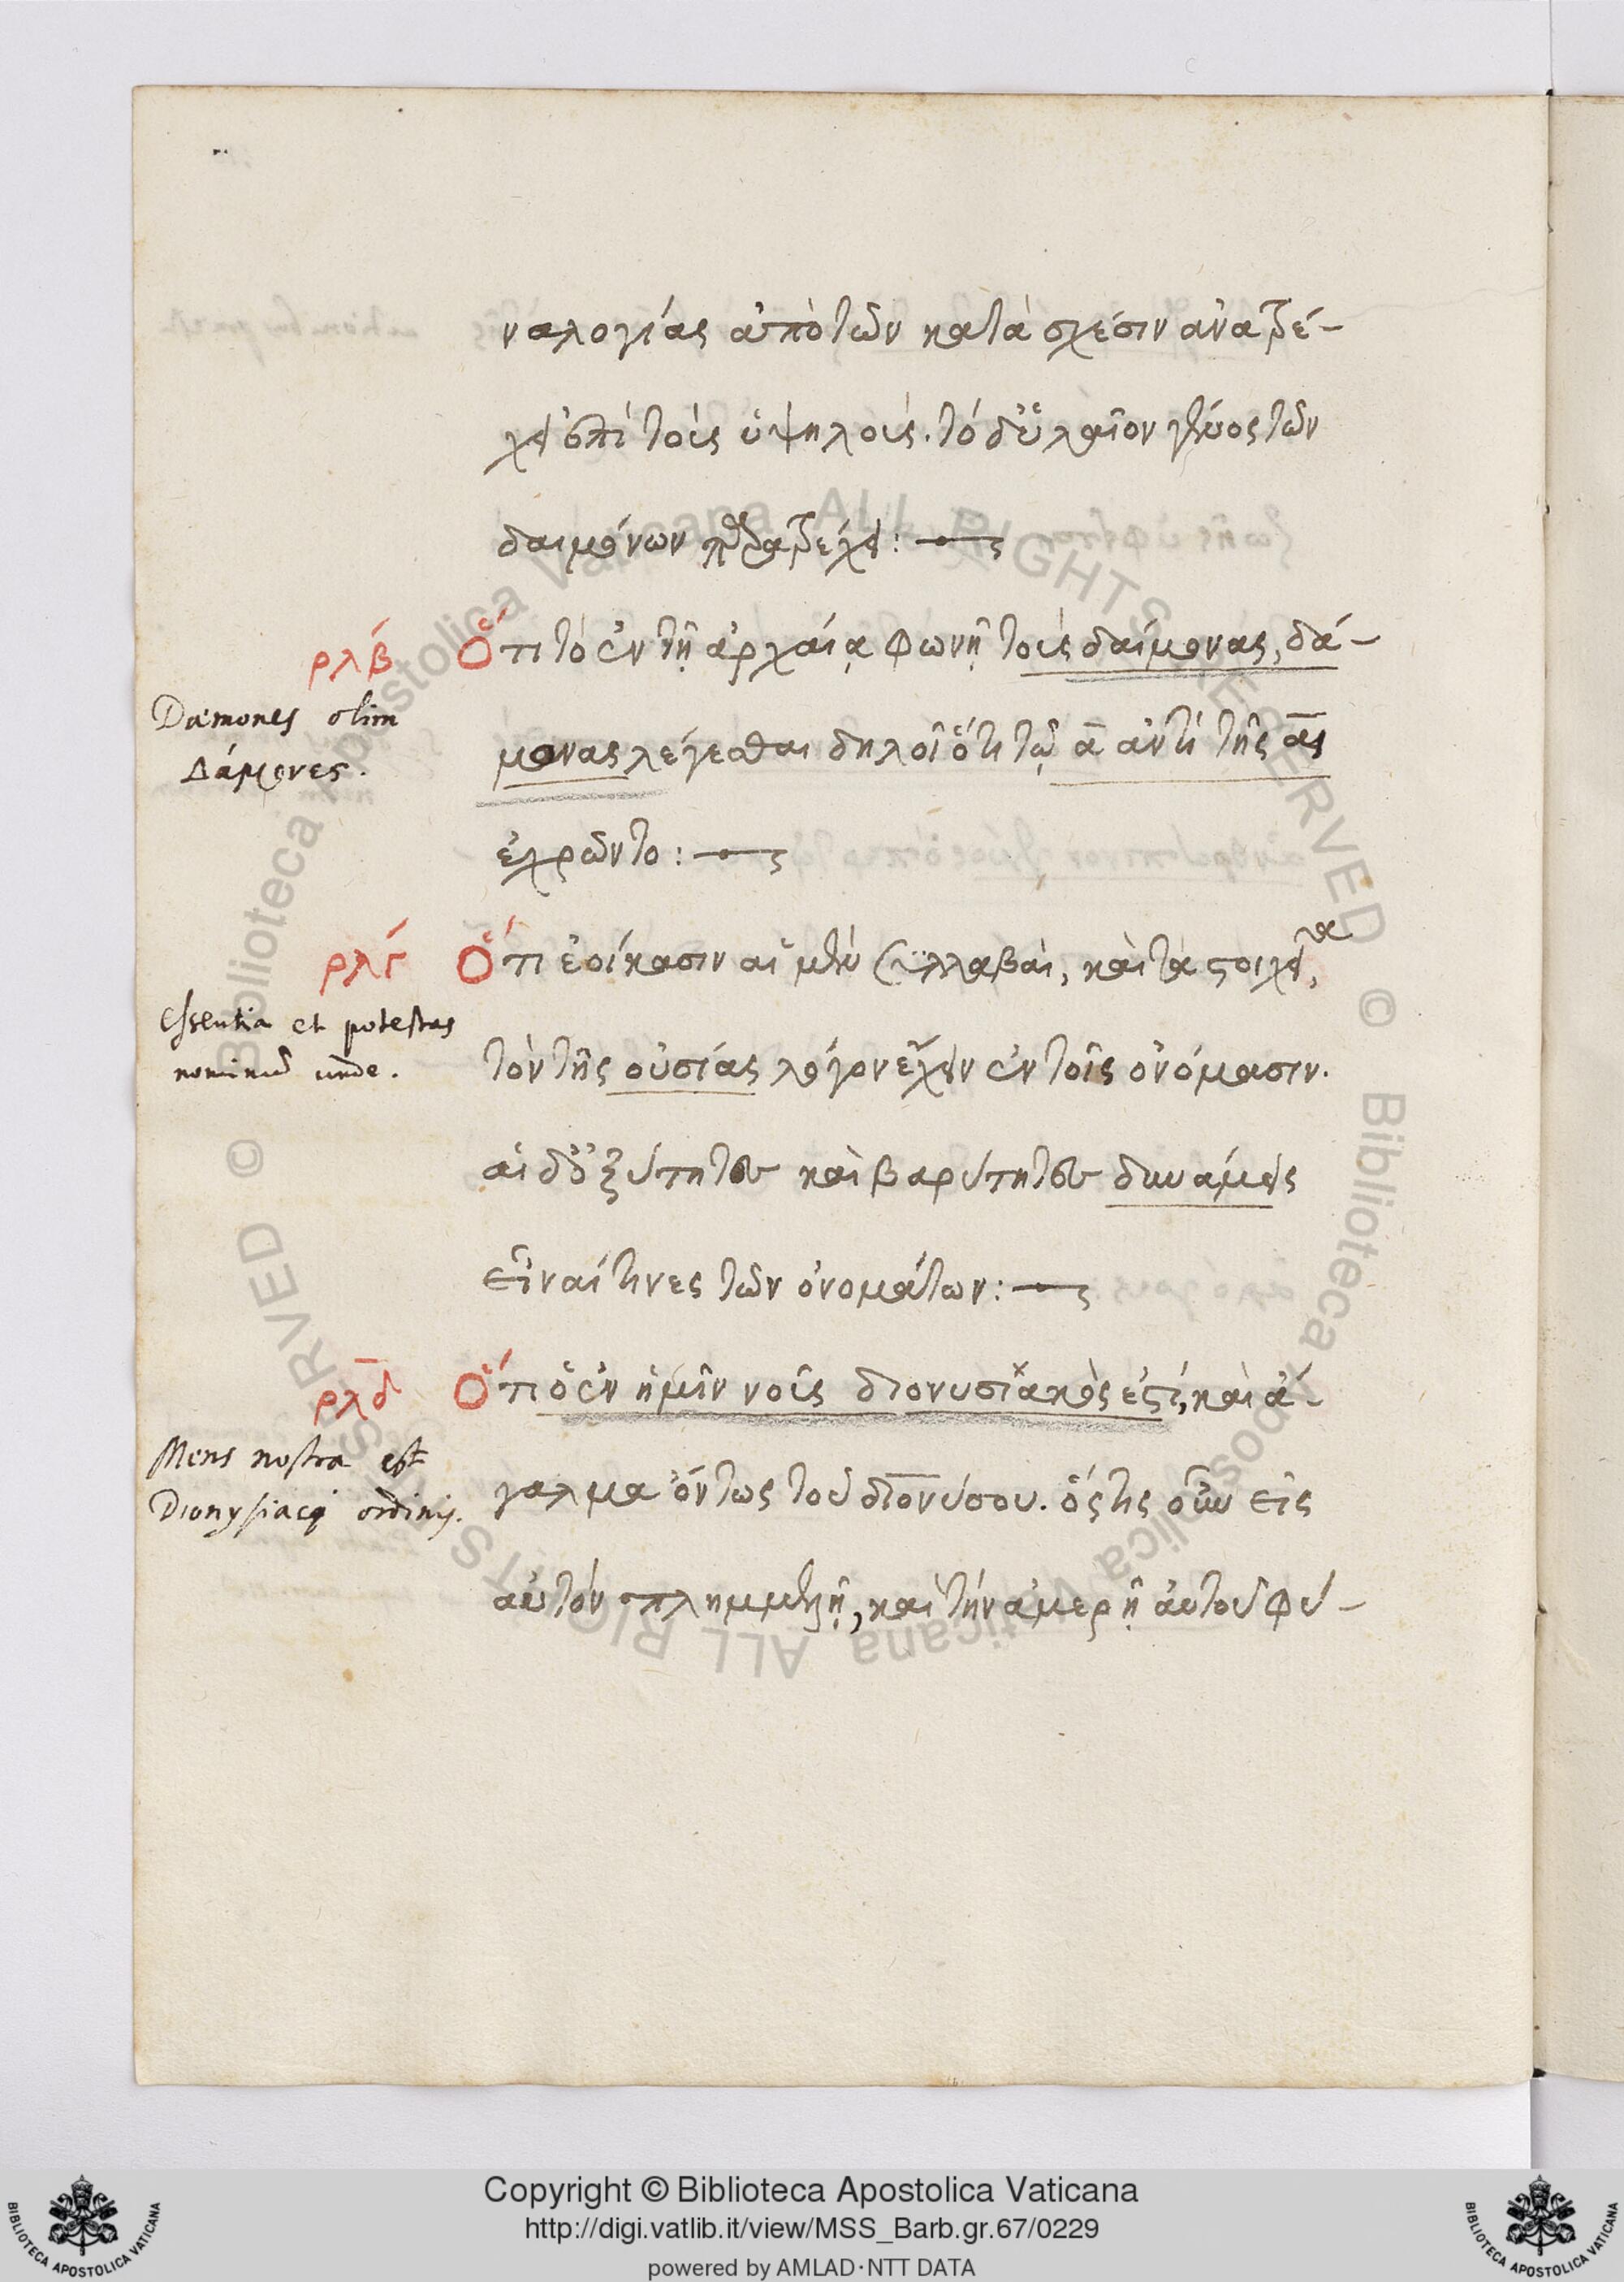 ναλογίας ἀπὸ τῶν κατὰ σχέσιν ἀνατρέ-
χει ἐπὶ τοὺς ὑψηλούς. τὸ δ' ὑλαῖον γένος τῶν
δαιμόνων
ρλβ Ὅτι τὸ ἐν τῇ ἀρχαίᾳ φωνῇ τοὺς δαίμονας, δά-
Dæmones olim
Δάμονες.
μονας λέγεσθαι δηλοῖ ὅτι τῷ α ἀντὶ τῆς αι
ἐχρῶντο:
ρλγ Ὅτι ἐοίκασιν αἱ μὲν συλλαβαὶ, καὶ τὰ στοιχεῖα,
Essentia et potestas
nominũ unde.
τὸν τῆς οὐσίας λόγον ἔχειν ἐν τοῖς ὀνόμασιν.
αἱ δ' ὀξύτητες καὶ βαρύτητες δυνάμεις
εἶναί τινες τῶν ὀνομάτων:
ρλδ Ὅτι ὁ ἐν ἡμῖν νοῦς διονυσιακός ἐστι, καὶ ἄ-
Mens nostra est
Dionysiaci ordinis.
γαλμα ὄντως τοῦ διονύσου. ὅστις οὖν εἰς
αὐτὸν πλημμελῇ, καὶ τὴν ἀμερῆ αὐτοῦ φύ-
Copyright © Biblioteca Apostolica Vaticana
http://digi.vatlib.it/view/MSS_Barb.gr.67/0229
powered by AMLAD·NTT DATA